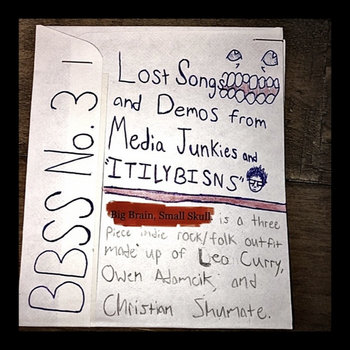 BBSS No. 3
Lost Songs
and Demos from
Media Junkies and
"ITILYBISNS"
Big Brain, Small Skull is a three
piece indie rock/folk outfit
made up of Leo Curry,
Owen Adamcik, and
Christian Shumate.